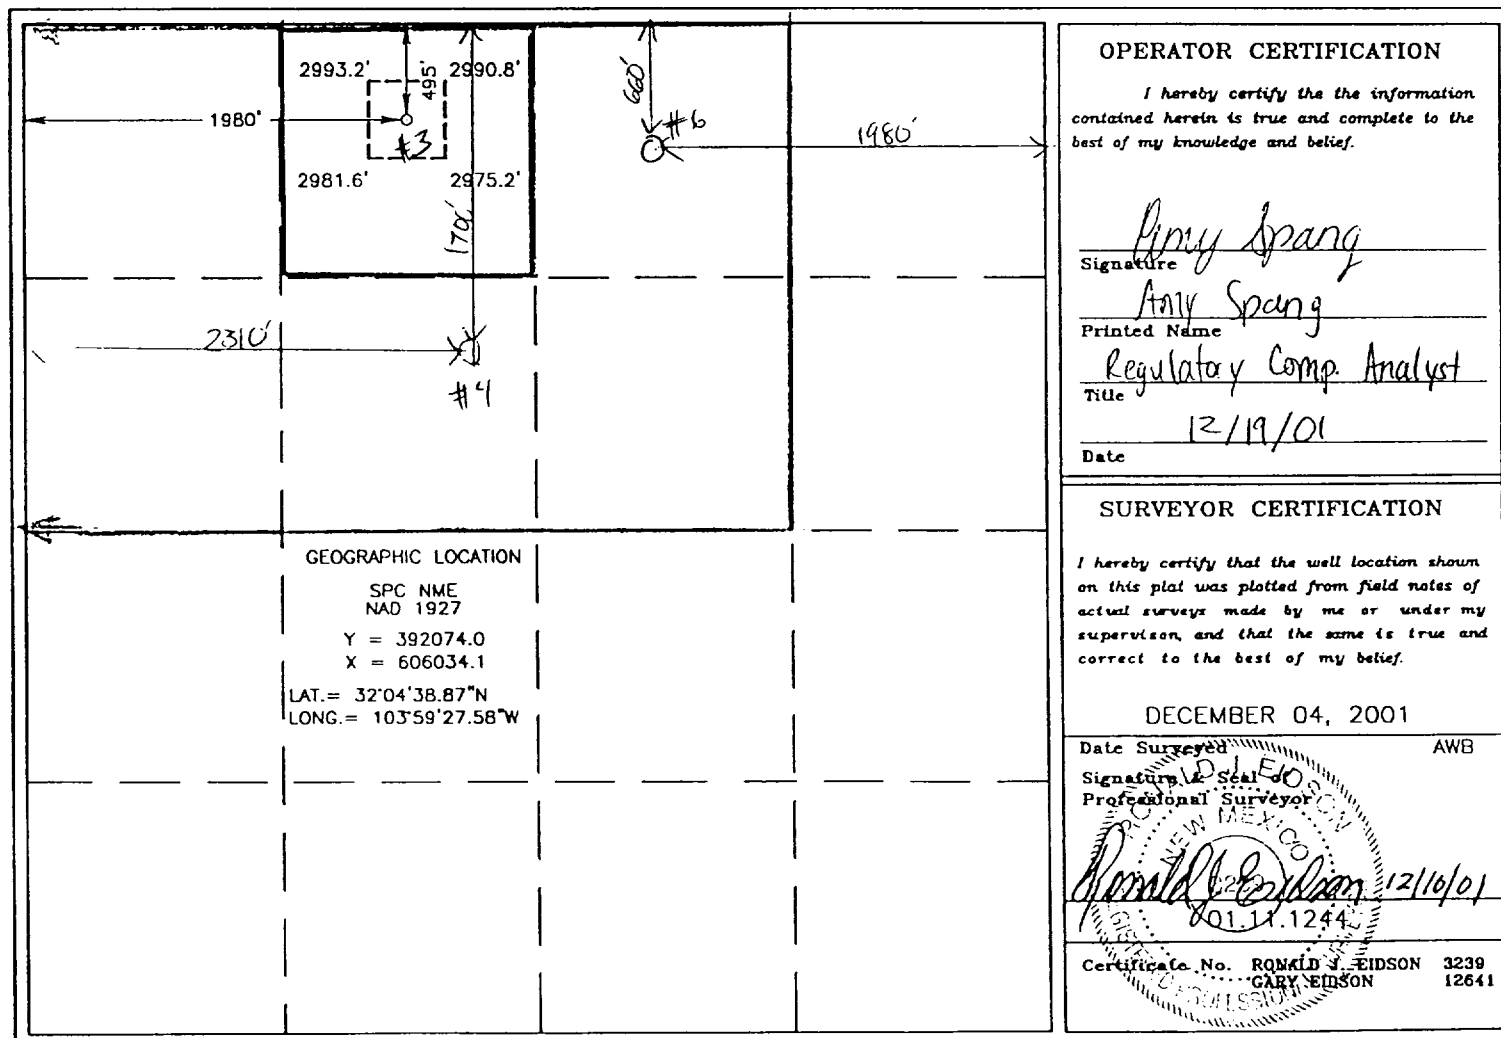 2993.2'
495'
2990.8'
1980'
#3
2981.6'
2975.2'
1700'
660'
#6
1980'
2310'
#4
GEOGRAPHIC LOCATION
SPC NME
NAD 1927
Y = 392074.0
X = 606034.1
LAT.= 32°04'38.87"N
LONG.= 103°59'27.58"W
OPERATOR CERTIFICATION
I hereby certify the the information
contained herein is true and complete to the
best of my knowledge and belief.
Amy Spang
Signature
Amy Spang
Printed Name
Regulatory Comp. Analyst
Title
12/19/01
Date
SURVEYOR CERTIFICATION
I hereby certify that the well location shown
on this plat was plotted from field notes of
actual surveys made by me or under my
supervison, and that the same is true and
correct to the best of my belief.
DECEMBER 04, 2001
Date Surveyed AWB
Signature & Seal of
Professional Surveyor
RONALD J. EIDSON
NEW MEXICO
Ronald J Eidson 12/10/01
01.11.1244
Certificate No. RONALD J. EIDSON 3239
GARY EIDSON 12641